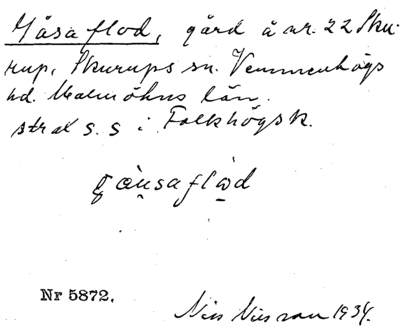 Gåsaflod, gård å nr. 22 Sku-
rup, Skurups sn. Vemmenhögs
hd. Malmöhus län.
strax s. s i Folkhögsk.
gåusaflod
Nr 5872.
Nils Nilsson 1934.